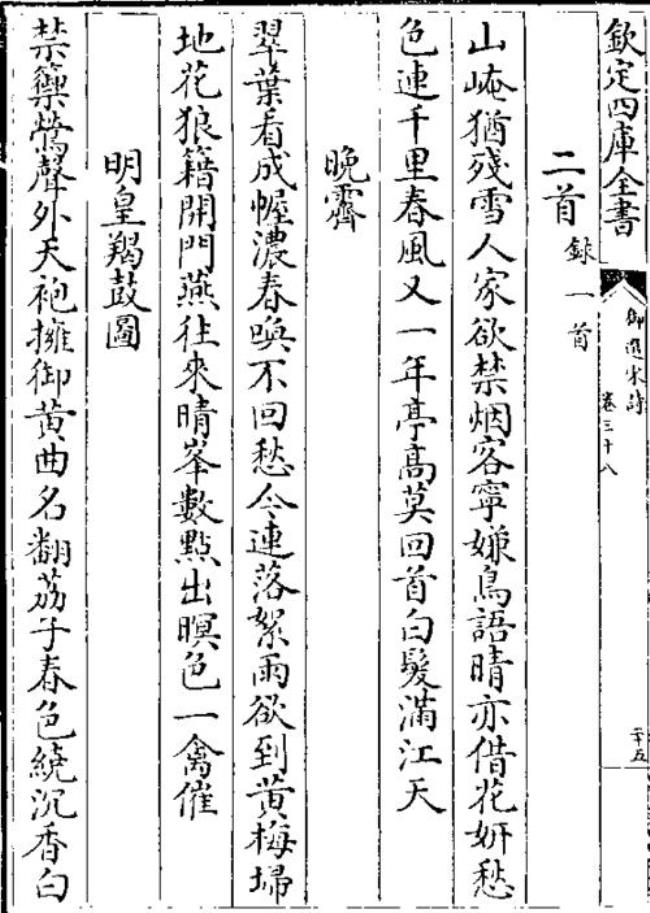 欽定四庫全書
御選宋詩
卷三十八
二十五
二首錄一首
山崦猶殘雪人家欲禁烟客寧嫌鳥語晴亦借花妍愁
色連千里春風又一年亭高莫回首白髮滿江天
晚霽
翠葉看成幄濃春喚不回愁今連落絮雨欲到黃梅埽
地花狼籍開門燕往來晴峯數點出暝色一禽催
明皇羯鼓圖
禁籞鶯聲外天袍擁御黃曲名翻荔子春色繞沉香白